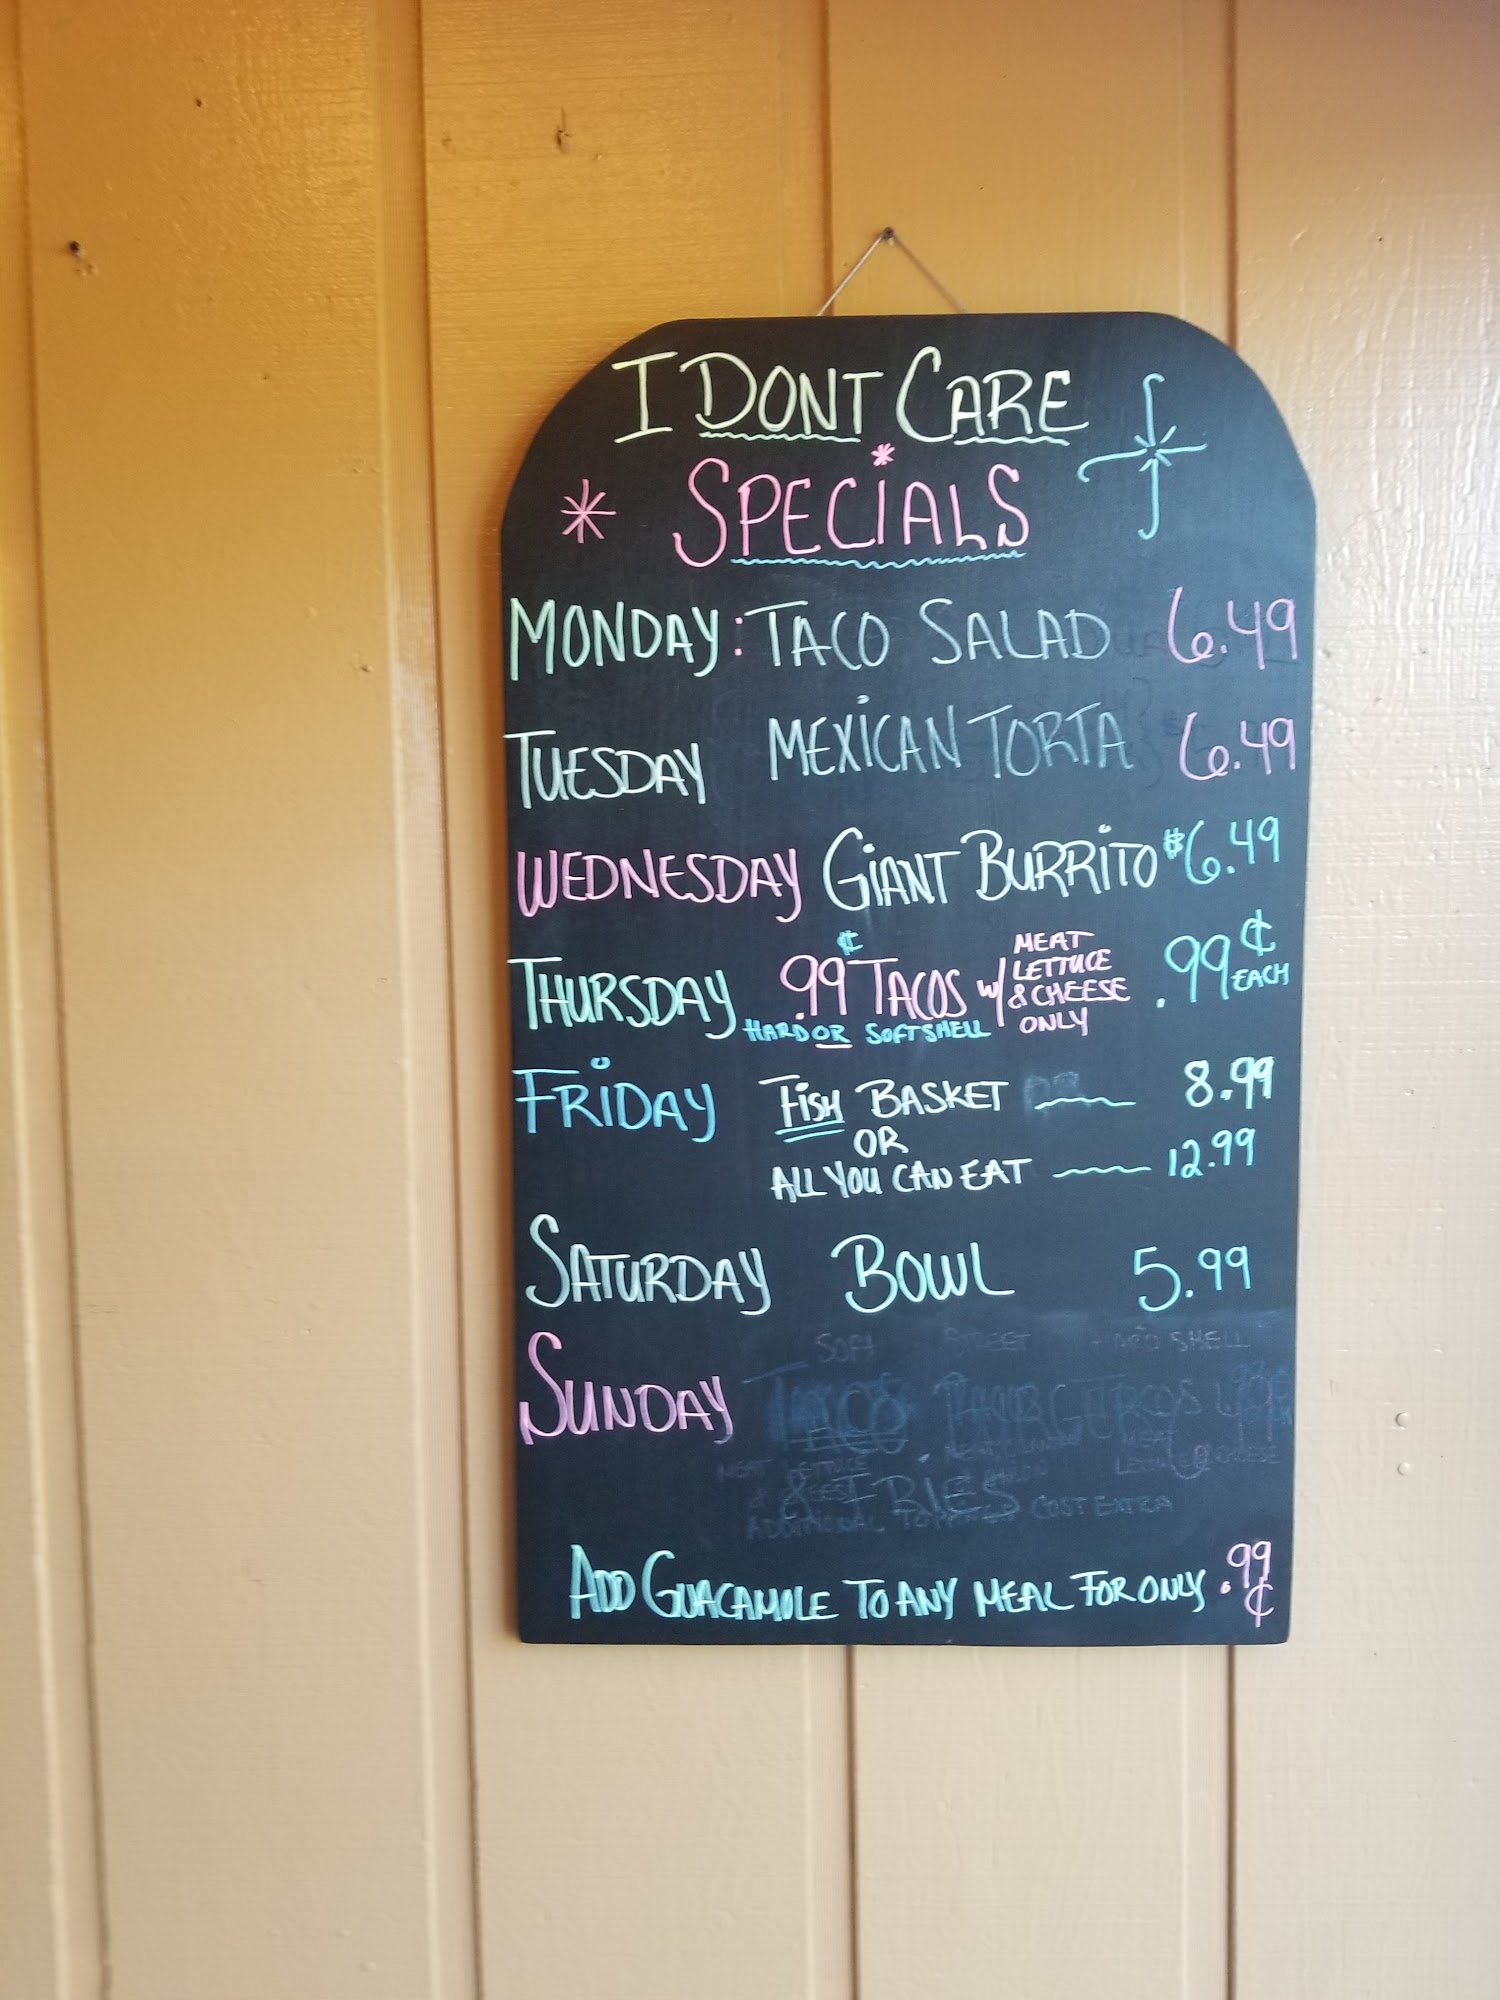 I DONT CARE
SPECIALS
MONDAY: TACO SALAD 6.49
TUESDAY MEXICAN TORTA 6.49
WEDNESDAY GIANT BURRITO $6.49
THURSDAY .99¢ TACOS W/ MEAT LETTUCE & CHEESE ONLY .99¢ EACH
HARD OR SOFT SHELL
FRIDAY FISH BASKET 8.99
OR
ALL YOU CAN EAT 12.99
SATURDAY BOWL 5.99
SOFT HARD SHELL
SUNDAY TACOS
MEAT LETTUCE
FRIES
ADDITIONAL COST EXTRA
ADD GUACAMOLE TO ANY MEAL FOR ONLY .99¢